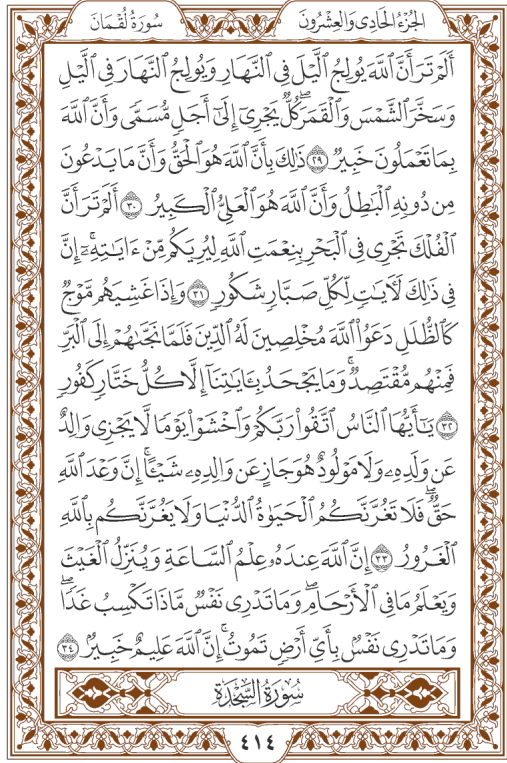 الجزء الحادي والعشرون
سورة لقمان
أَلَمْ تَرَ أَنَّ ٱللَّهَ يُولِجُ ٱلَّيْلَ فِي ٱلنَّهَارِ وَيُولِجُ ٱلنَّهَارَ فِي ٱلَّيْلِ
وَسَخَّرَ ٱلشَّمْسَ وَٱلْقَمَرَۖ كُلٌّ يَجْرِيٓ إِلَىٰٓ أَجَلٍ مُّسَمًّى وَأَنَّ ٱللَّهَ
بِمَا تَعْمَلُونَ خَبِيرٌ ٢٩ ذَٰلِكَ بِأَنَّ ٱللَّهَ هُوَ ٱلْحَقُّ وَأَنَّ مَا يَدْعُونَ
مِن دُونِهِ ٱلْبَٰطِلُ وَأَنَّ ٱللَّهَ هُوَ ٱلْعَلِيُّ ٱلْكَبِيرُ ٣٠ أَلَمْ تَرَ أَنَّ
ٱلْفُلْكَ تَجْرِي فِي ٱلْبَحْرِ بِنِعْمَتِ ٱللَّهِ لِيُرِيَكُم مِّنْ ءَايَٰتِهِۦٓۚ إِنَّ
فِي ذَٰلِكَ لَءَايَٰتٍ لِّكُلِّ صَبَّارٍ شَكُورٍ ٣١ وَإِذَا غَشِيَهُم مَّوْجٌ
كَٱلظُّلَلِ دَعَوُا۟ ٱللَّهَ مُخْلِصِينَ لَهُ ٱلدِّينَ فَلَمَّا نَجَّىٰهُمْ إِلَى ٱلْبَرِّ
فَمِنْهُم مُّقْتَصِدٌۚ وَمَا يَجْحَدُ بِـَٔايَٰتِنَآ إِلَّا كُلُّ خَتَّارٍ كَفُورٍ
٣٢ يَٰٓأَيُّهَا ٱلنَّاسُ ٱتَّقُوا۟ رَبَّكُمْ وَٱخْشَوْا۟ يَوْمًا لَّا يَجْزِي وَالِدٌ
عَن وَلَدِهِۦ وَلَا مَوْلُودٌ هُوَ جَازٍ عَن وَالِدِهِۦ شَيْـًٔاۚ إِنَّ وَعْدَ ٱللَّهِ
حَقٌّۖ فَلَا تَغُرَّنَّكُمُ ٱلْحَيَوٰةُ ٱلدُّنْيَا وَلَا يَغُرَّنَّكُم بِٱللَّهِ
ٱلْغَرُورُ ٣٣ إِنَّ ٱللَّهَ عِندَهُۥ عِلْمُ ٱلسَّاعَةِ وَيُنَزِّلُ ٱلْغَيْثَ
وَيَعْلَمُ مَا فِي ٱلْأَرْحَامِۖ وَمَا تَدْرِي نَفْسٌ مَّاذَا تَكْسِبُ غَدًاۖ
وَمَا تَدْرِي نَفْسٌۢ بِأَيِّ أَرْضٍ تَمُوتُۚ إِنَّ ٱللَّهَ عَلِيمٌ خَبِيرٌۢ ٣٤
سُورَةُ السَّجْدَةِ
٤١٤